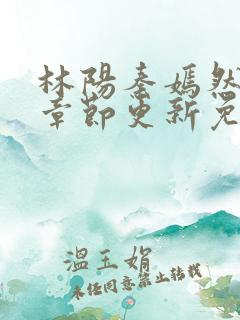 林陽秦嫣然
章節更新免
溫玉娟
未經同意禁止轉載